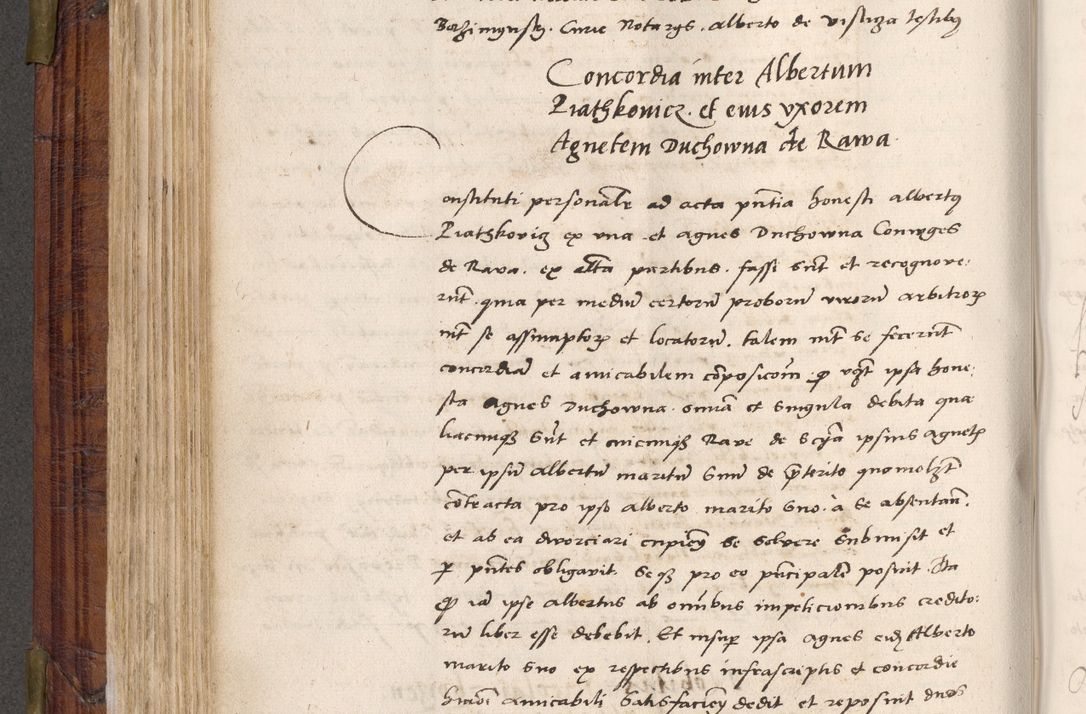 Curie Notargs. Alberto de Vistiga testibus
Concordia inter Albertum
Ziathkovicz. et eius vxorem
Agnetem Duchowna de Rawa.
Constituti personalr ad acta pntia honesti albertus
Ziathkovicz ex vna. et agnes Duchowna Coniuges
de Rava. ex altra partibus. fassi sunt et recognove:
runt. quia per medium certorum proborum virorum arbitror
int se assumptor et locatorum. talem int se fecerunt
concordiam et amicabilem composicom. q vizt ipsa hone:
sta Agnes Duchowna. omnia et singula debita qua
liacunq sint et cuicunq Rave de scia ipsius agnetis
per ipsum albertum maritum suum de preterito quomolzt
contracta pro ipso alberto marito suo. a se absentan.
et ab ea divorciari cupien se solvere submisit et
per pntes obligavit. seq pro eo principalem posuit. Ita
q iam ipse albertus ab omnibus impeticionibus credito:
rum liber esse debebit. Et insup ipsa agnes eidem Alberto
marito suo ex respectibus infrascriptis et concordie
huiusmodi amicabili satisfaciens dedit et reposuit duos